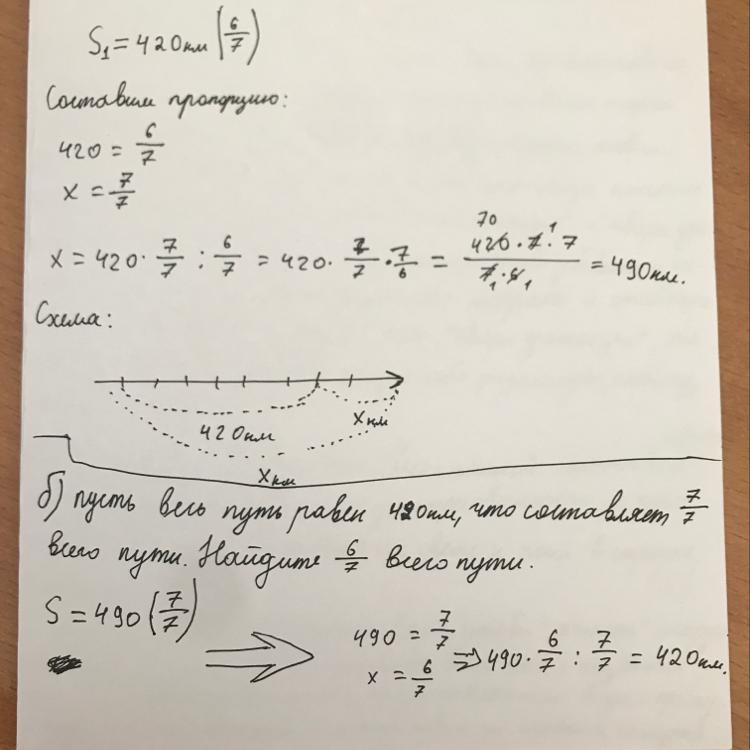 S₁ = 420км (6/7)
Составим пропорцию:
420 = 6/7
x = 7/7
x = 420 · 7/7 : 6/7 = 420 · 7/7 · 7/6 = 420 · 7 · 7 / 7 · 6 = 490км.
70 1
1 1
Схема:
420км
xкм
xкм
б) пусть весь путь равен 420км, что составляет 7/7
всего пути. Найдите 6/7 всего пути.
S = 490 (7/7)
490 = 7/7
x = 6/7
⇒ 490 · 6/7 : 7/7 = 420км.